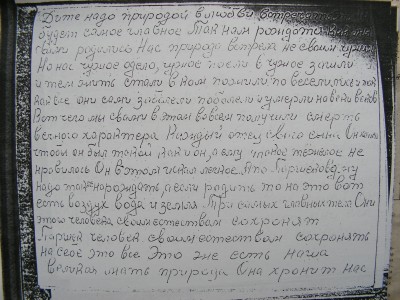 Дите надо природой в любви встрe
будет самое главное Там нам рождата
были родились Нас природа встрела не своим чужим
На нас чужое одело, чужое поели в чужое зашли
и тем жить стали в ком пожили повеселились и
все они сами заболели поболели и умерли на веки веков
Вот чего мы своим в этом во всем получили смерть
вечного характера Каждый отец своего сына Он
чтобы он был такой как и он, а ему тяжелое не
нравилось Он в этом искал легкое. А по Паршековому
надо так нарождать, а если родить то на это вот
есть воздух вода и земля При самых главных тех Они
этого человека своим естеством сохранят
Паршек человек своим естеством сохранять
на себе это все Это же есть наша
великая мать природа Она хронит нас